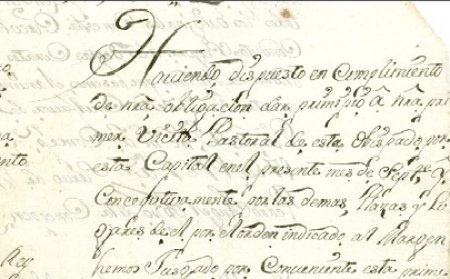 Haviendo dispuesto en Cumplimiento
de nrã obligacion dar principio â nrã pri
mera Visita Pastoral de este Obispado por
esta Capital en el presente mes de Septre. y
Concecutivamente por las demas Plazas y Lu
gares de el por el orden indicado al Margen
hemos Jusgado por Conveniente esta prime